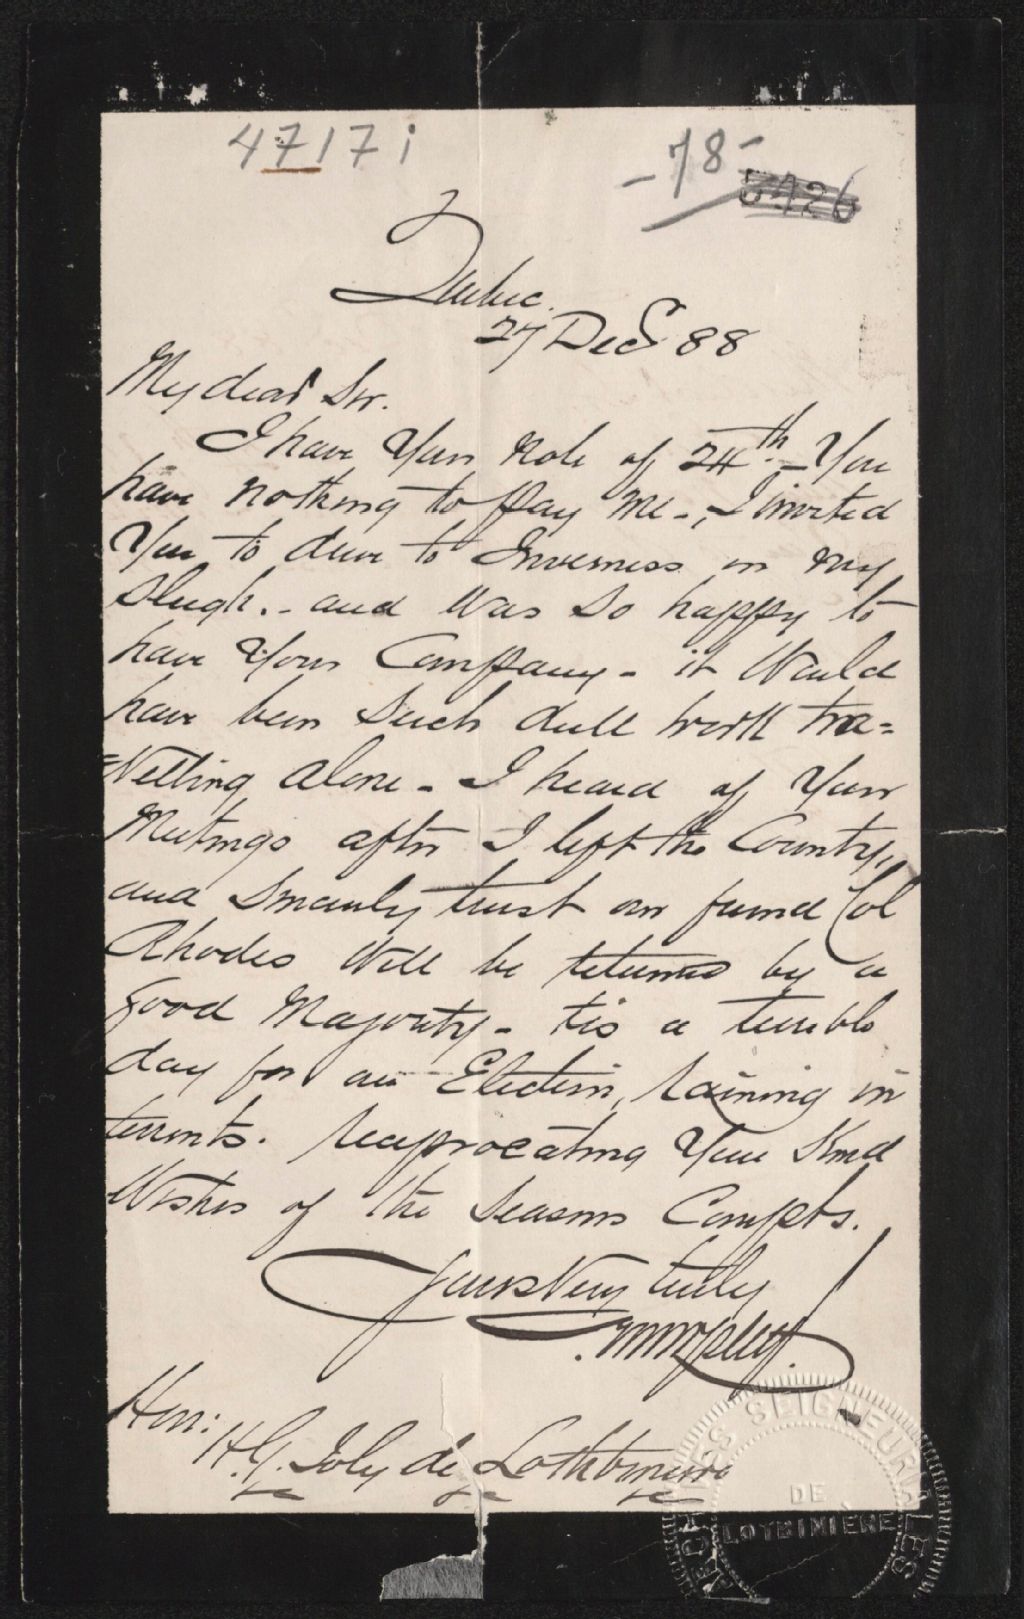 4717 i
- 78 -
5426
Quebec.
27 Decr 88
My dear Sir.
I have Your Note of 24th - You
have nothing to pay me -, I invited
You to drive to Inverness in my
Sleigh. - and was so happy to
have Your Company - it Would
have been such dull work tra=
=velling alone - I heard of Your
Meetings after I left the County,
and Sincerely trust our friend Col
Rhodes will be returned by a
good Majority - tis a terrible
day for an Election, raining in
torrents. reciprocating Your Kind
Wishes of the Seasons Compts.
Yours Very truly
Hon:
H.G. Joly de Lotbiniere
ARCHIVES SEIGNEURIALES
DE
LOTBINIÈRE